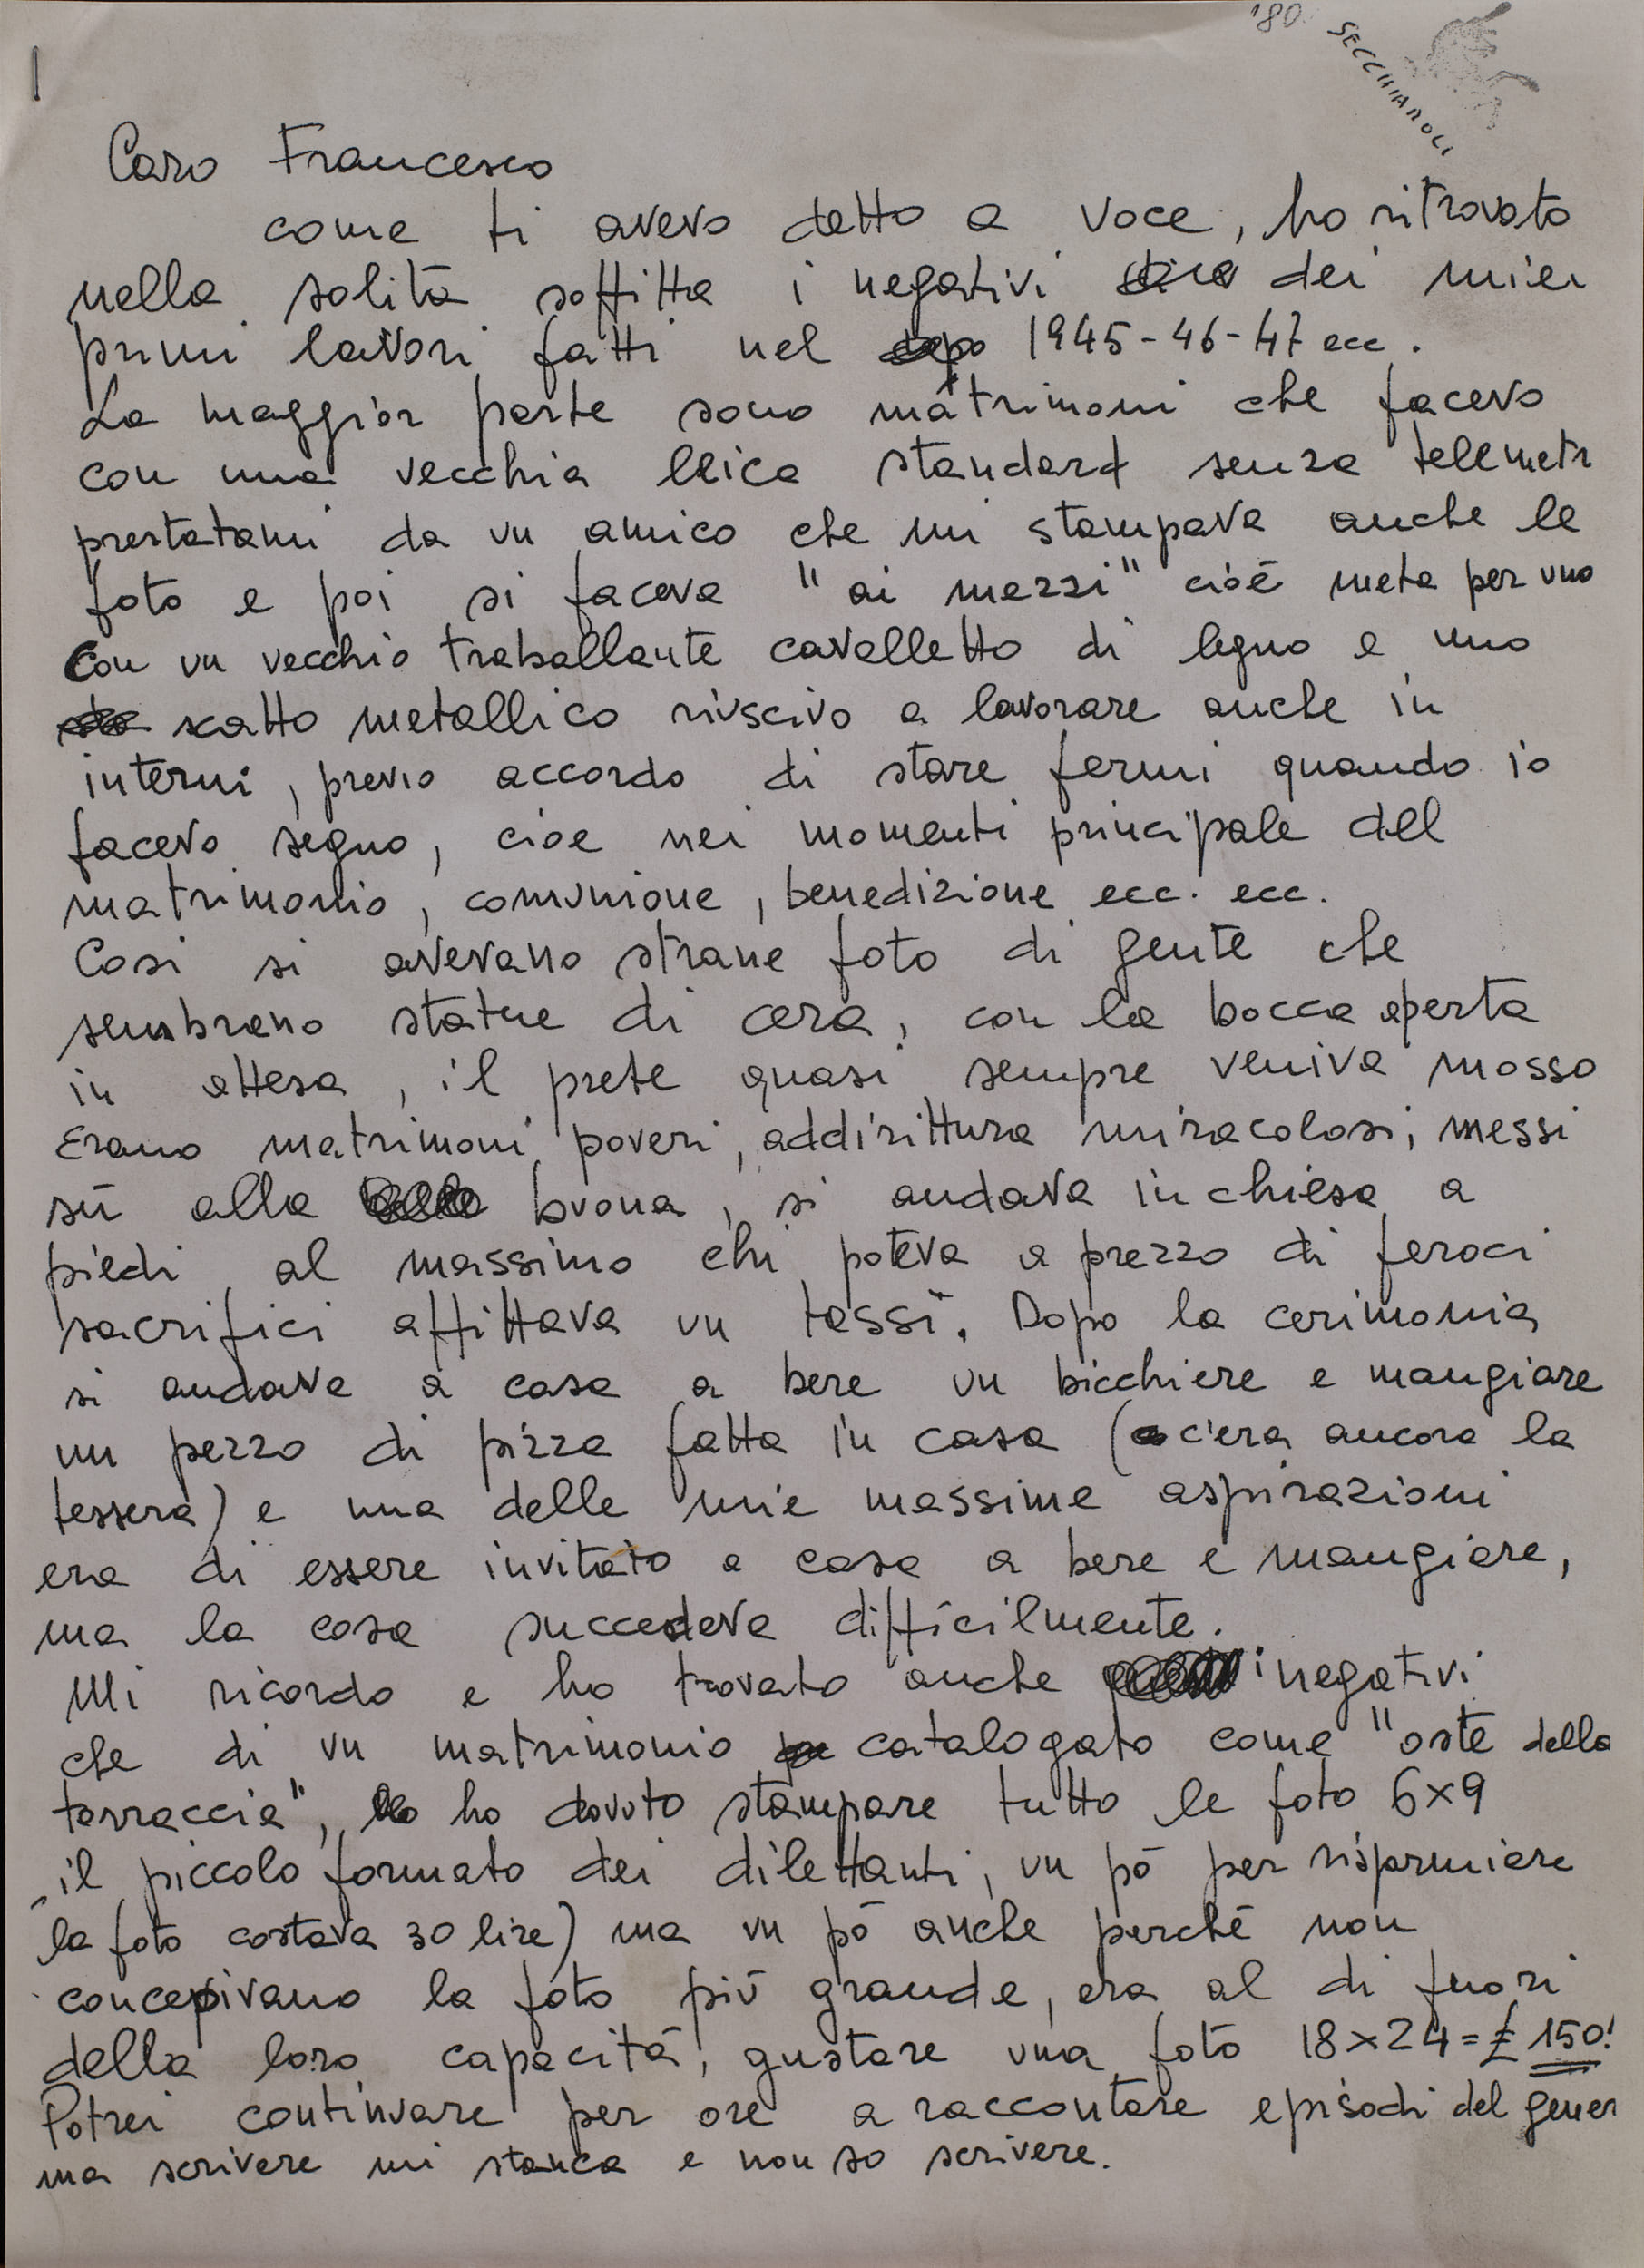 '80
SECCHIAROLI
Caro Francesco
come ti avevo detto a voce, ho ritrovato
nella solita soffitta i negativi dei miei
primi lavori fatti nel dopo 1945-46-47 ecc.
La maggior parte sono matrimoni che facevo
con una vecchia leica standard senza telemetr
prestatami da un amico che mi stampava anche le
foto e poi si faceva "ai mezzi" cioè meta per uno
Con un vecchio traballante cavalletto di legno e uno
scatto metallico riuscivo a lavorare anche in
interni, previo accordo di stare fermi quando io
facevo segno, cioe nei momenti principale del
matrimonio, comunione, benedizione ecc. ecc.
Cosi si avevano strane foto di gente che
sembrano statue di cera, con la bocca aperta
in attesa, il prete quasi sempre veniva mosso
Erano matrimoni poveri, addirittura miracolosi, messi
sù alla buona, si andava in chiesa a
piedi al massimo chi poteva a prezzo di feroci
sacrifici affittava un tassì. Dopo la cerimonia
si andava a casa a bere un bicchiere e mangiare
un pezzo di pizza fatta in casa (c'era ancora la
tessera) e una delle mie massime aspirazioni
era di essere invitato a casa a bere e mangiare,
ma la cosa succedeva difficilmente.
Mi ricordo e ho trovato anche i negativi
che di un matrimonio catalogato come "oste della
terraccia", ho dovuto stampare tutto le foto 6x9
il piccolo formato dei dilettanti, un pò per risparmiare
la foto costava 30 lire) ma un pò anche perché non
concepivano la foto più grande, era al di fuori
della loro capacità, gustare una foto 18x24=£ 150!
Potrei continuare per ore a raccontare episodi del gener
ma scrivere mi stanca e non so scrivere.